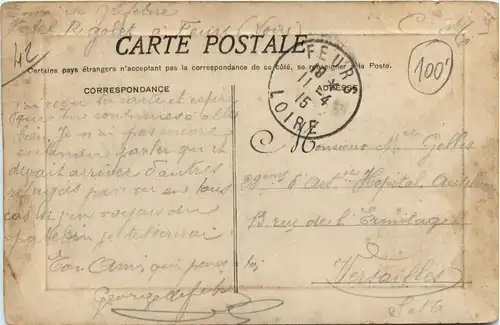 Lefebre
Hotel Rigolet a Feurs (Loire)
42
CARTE POSTALE
100
Certains pays étrangers n'acceptent pas la correspondance de ce côté, se renseigner à la Poste.
CORRESPONDANCE
ADRESSE
FEURS
18 *
11 -4
15
LOIRE
J'ai reçu ta carte et espère
que tu continues à aller
bien. Je n'ai pas encore
entendu parler qu'il
devait arriver d'autres
réfugiés par ici en tous
cas si j'en voyais du
je te l'écrirai
Ton Ami qui pense à toi
George Lefebre
Monsieur Mce Gelles
Hôpital
13 rue de l'Ermitage
Versailles
S et O